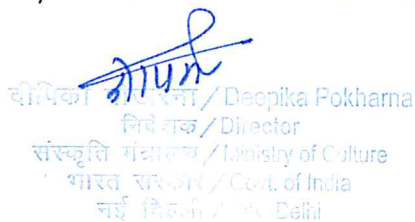 दीपिका / Deepika Pokharna
निदेशक / Director
संस्कृति मंत्रालय / Ministry of Culture
भारत सरकार / Govt. of India
नई दिल्ली / Delhi